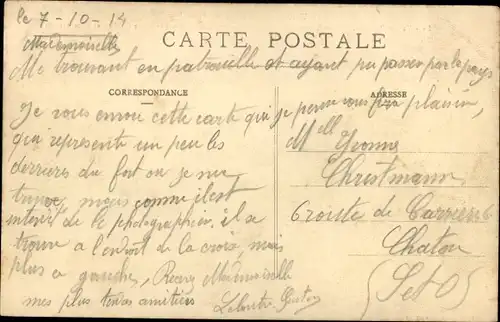 le 7-10-14
Mademoiselle
CARTE POSTALE
Me trouvant en patrouille et ayant pu passer par le pays
CORRESPONDANCE
ADRESSE
Je vous envoi cette carte qui je pense vous fera plaisir,
qui représente un peu les
derrières du fort ou je me
trouve, mais comme il est
interdit de le photographier. il a
trouve a l'endroit de la croix, mais
plus a gauche, Recevez Mademoiselle
mes plus tendres amitiés
Mlle Yvonne
Christmann
6 route de Carrières 6
Chatou
(S et O)